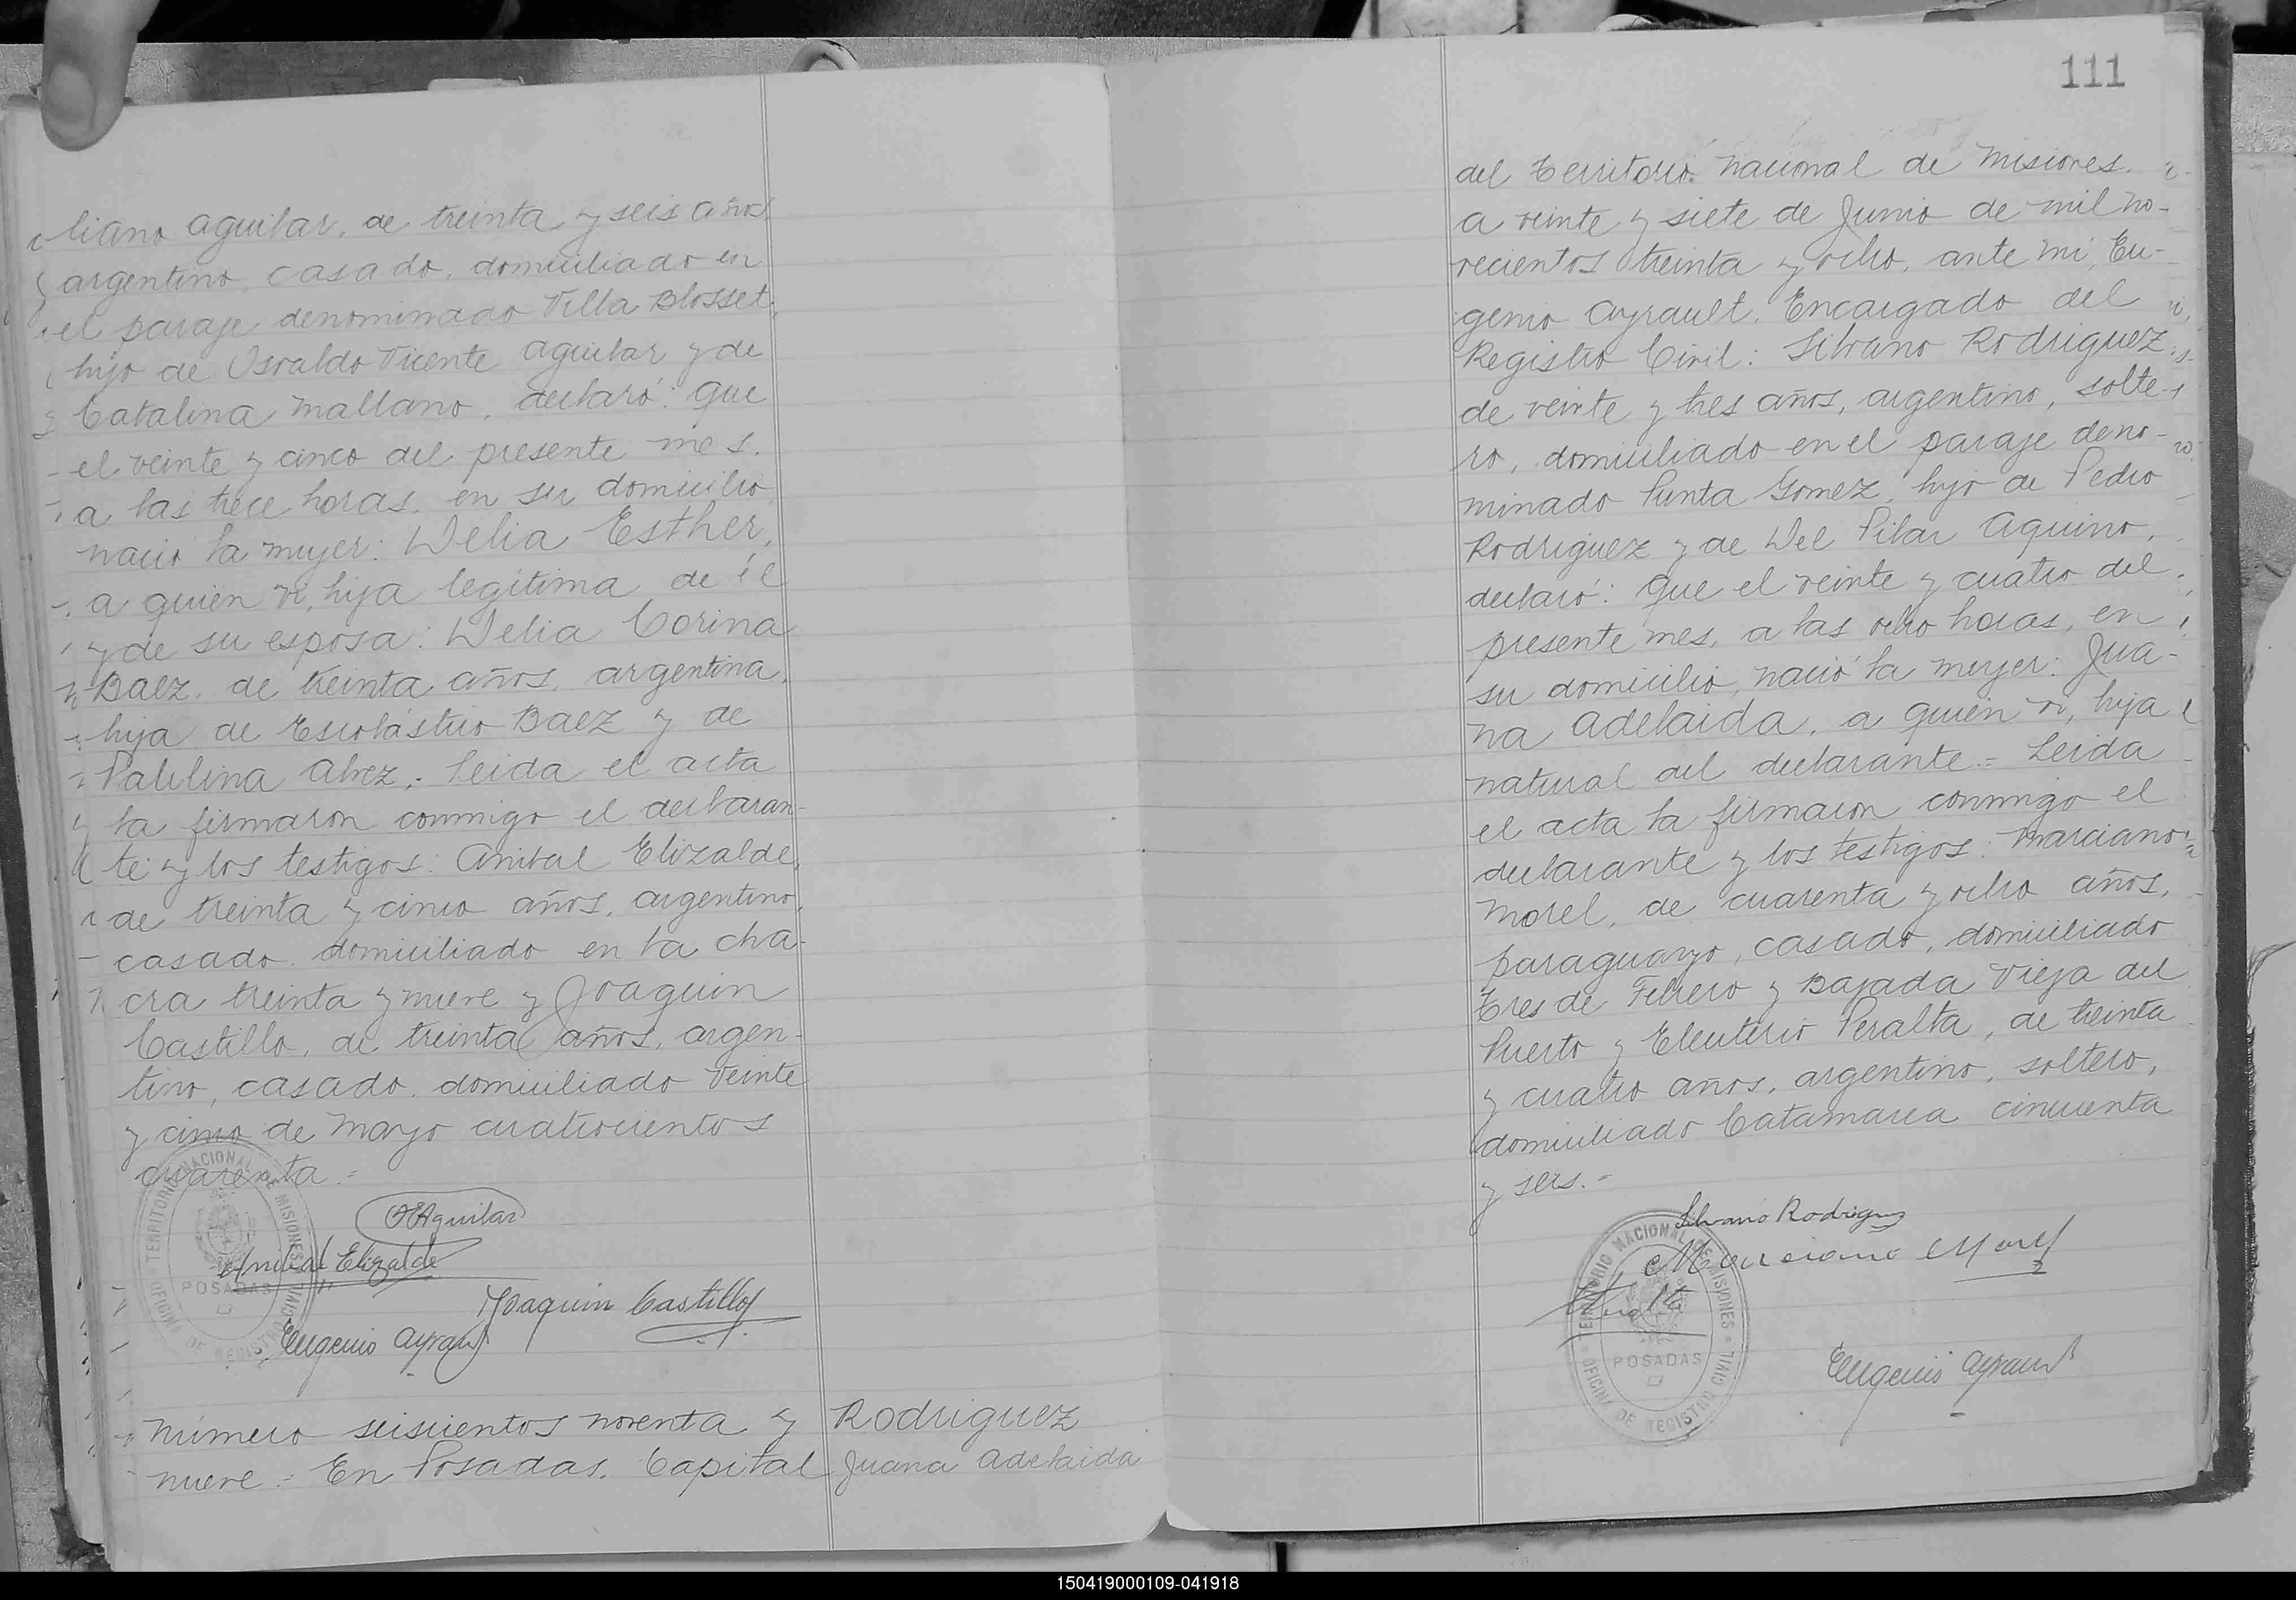 liano Aguilar, de treinta y seis años
argentino, casado, domiciliado en
el paraje denominado Villa Blosset,
hijo de Osvaldo Vicente Aguilar y de
Catalina Mallano, declaró: Que
el veinte y cinco del presente mes,
a las trece horas, en su domicilio,
nació la mujer: Delia Esther,
a quien vi, hija legítima de él
y de su esposa: Delia Corina
Baez, de treinta años, argentina,
hija de Escolástico Baez y de
Paulina Alvez. Leida el acta
la firmaron conmigo el declaran-
te y los testigos: Anibal Elizalde,
de treinta y cinco años, argentino,
casado, domiciliado en la cha-
cra treinta y nueve y Joaquin
Castillo, de treinta años, argen-
tino, casado, domiciliado Veinte
y cinco de Mayo cuatrocientos
cuarenta.=
OEAguilar
Anibal Elizalde
Joaquin Castillo
Eugenio Ayrault
TERRITORIO NACIONAL DE MISIONES
OFICINA DE REGISTRO CIVIL
POSADAS
Número seiscientos noventa y
nueve.= En Posadas, Capital
Rodriguez
Juana Adelaida
111
del Territorio Nacional de Misiones,
a veinte y siete de Junio de mil no-
vecientos treinta y ocho, ante mi, Eu-
genio Ayrault, Encargado del
Registro Civil: Silvano Rodriguez,
de veinte y tres años, argentino, solte-
ro, domiciliado en el paraje deno-
minado Punta Gomez, hijo de Pedro
Rodriguez y de Del Pilar Aquino,
declaró: Que el veinte y cuatro del
presente mes, a las ocho horas, en
su domicilio, nació la mujer: Jua-
na Adelaida, a quien vi, hija
natural del declarante.= Leida
el acta la firmaron conmigo el
declarante y los testigos: Marciano
Morel, de cuarenta y ocho años,
paraguayo, casado, domiciliado
Tres de Febrero y Bajada Vieja del
Puerto y Eleuterio Peralta, de treinta
y cuatro años, argentino, soltero,
domiciliado Catamarca cincuenta
y seis.=
Silvano Rodriguez
Marciano Morel
Eugenio Ayrault
TERRITORIO NACIONAL DE MISIONES
OFICINA DE REGISTRO CIVIL
POSADAS
150419000109-041918